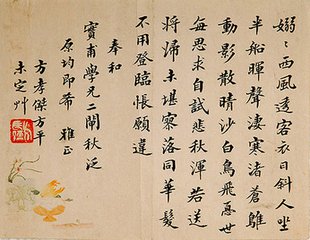 嫋〻西風透客衣日斜人坐
半船暉聲淒寒渚蒼鵻
動影散晴沙白鳥飛憂世
每思求自試悲秋渾若送
將歸未堪寥落同華髮
不用登臨悵願違
奉和
寶甫學兄二閘秋泛
原均即希 雅正
方孝傑方平
未定艸